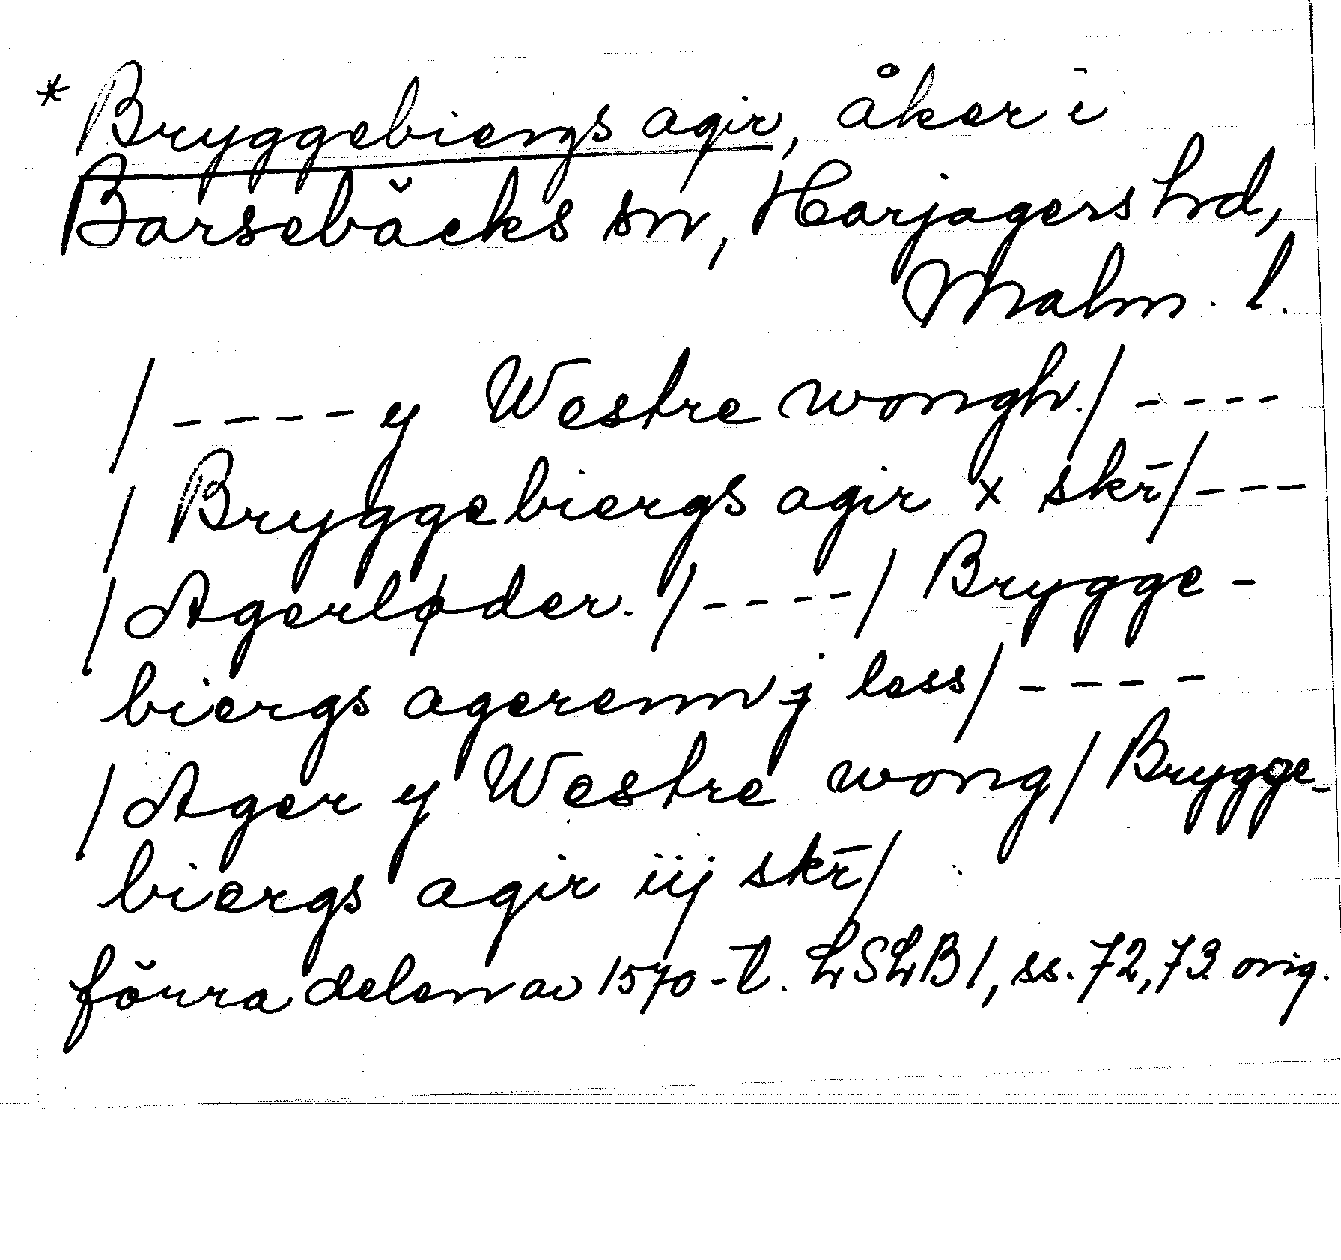 * Bryggebiergs agir, åker i
Barsebäcks sn, Harjagers hrd,
Malm. l.
/ ---- y Westre wongh. / ----
/ Bryggebiergs agir x skr̄ / ---
/ Agerløder. / ---- / Brygge-
biergs agerenn j less / ----
/ Ager y Westre wong / Brygge-
biergs agir iij skr̄ /
förra delen av 1570-t. LSLB 1, ss. 72, 73 orig.